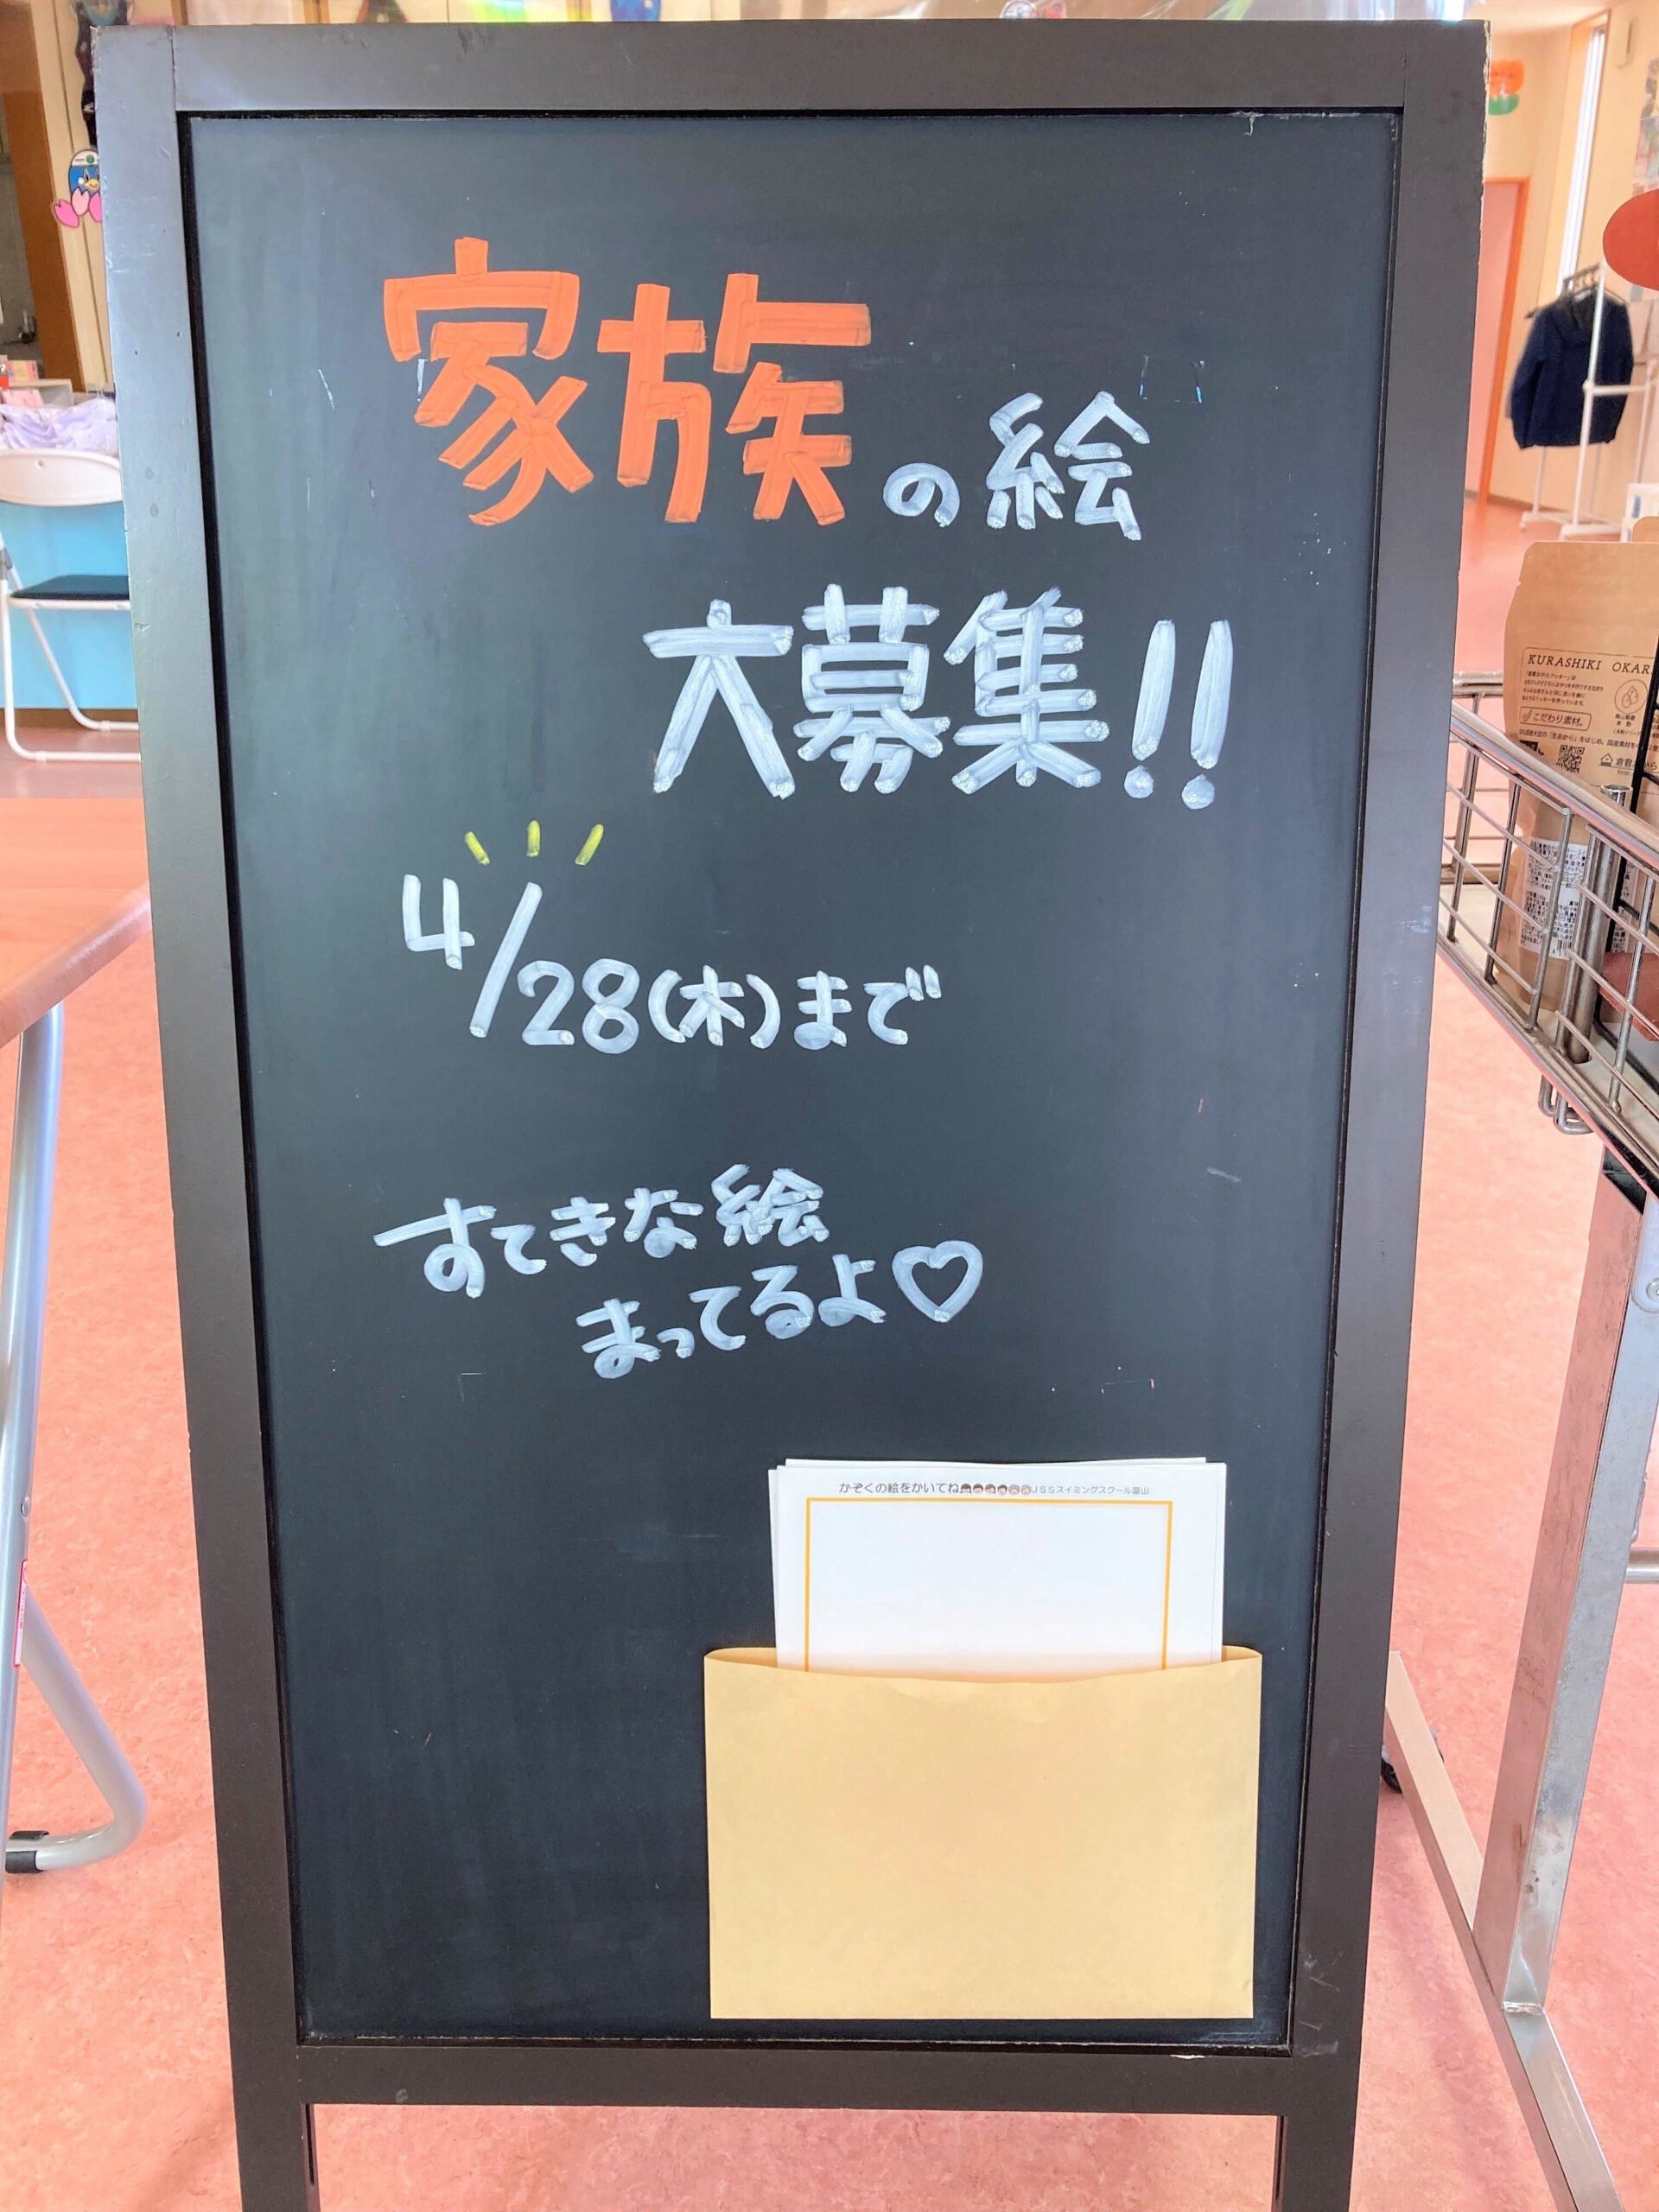 家族の絵
大募集!!
4/28(木)まで
すてきな絵
まってるよ♡
かぞくの絵をかいてね JSSスイミングスクール富山
KURASHIKI OKAR
こだわり素材。